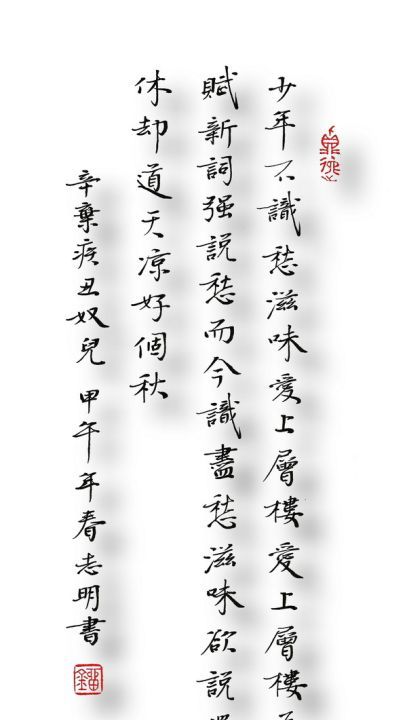 少年不識愁滋味愛上層樓愛上層樓
賦新詞强説愁而今識盡愁滋味欲説
休却道天涼好個秋
辛棄疾丑奴兒 甲午年春志明書